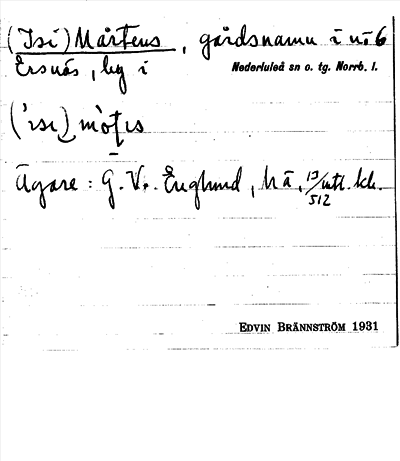 (Isi) Mårtens, gårdsnamn i nö 6
Ersnäs, by i Nederluleå sn o. tg. Norrb. l.
Ägare: G. V. Englund, hä, 13/512 mtl.
EDVIN BRÄNNSTRÖM 1931